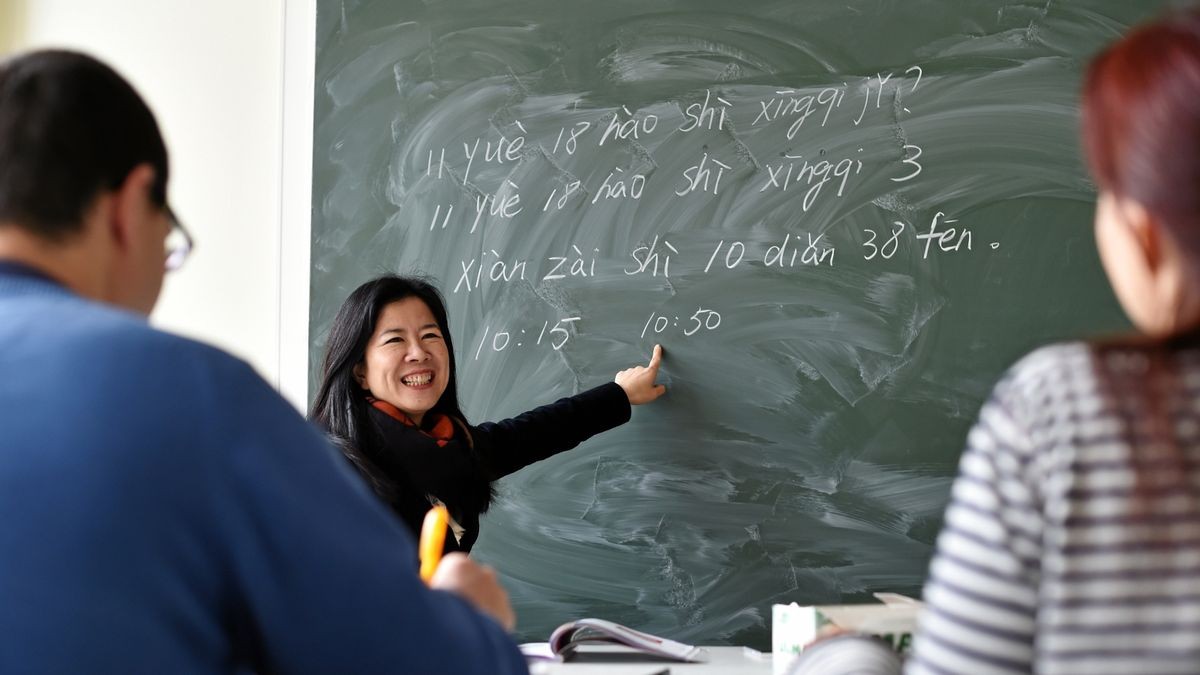 11 yuè 18 hào shì xīngqi jǐ?
11 yuè 18 hào shì xīngqi 3
xiàn zài shì 10 diǎn 38 fēn 。
10:15 10:50